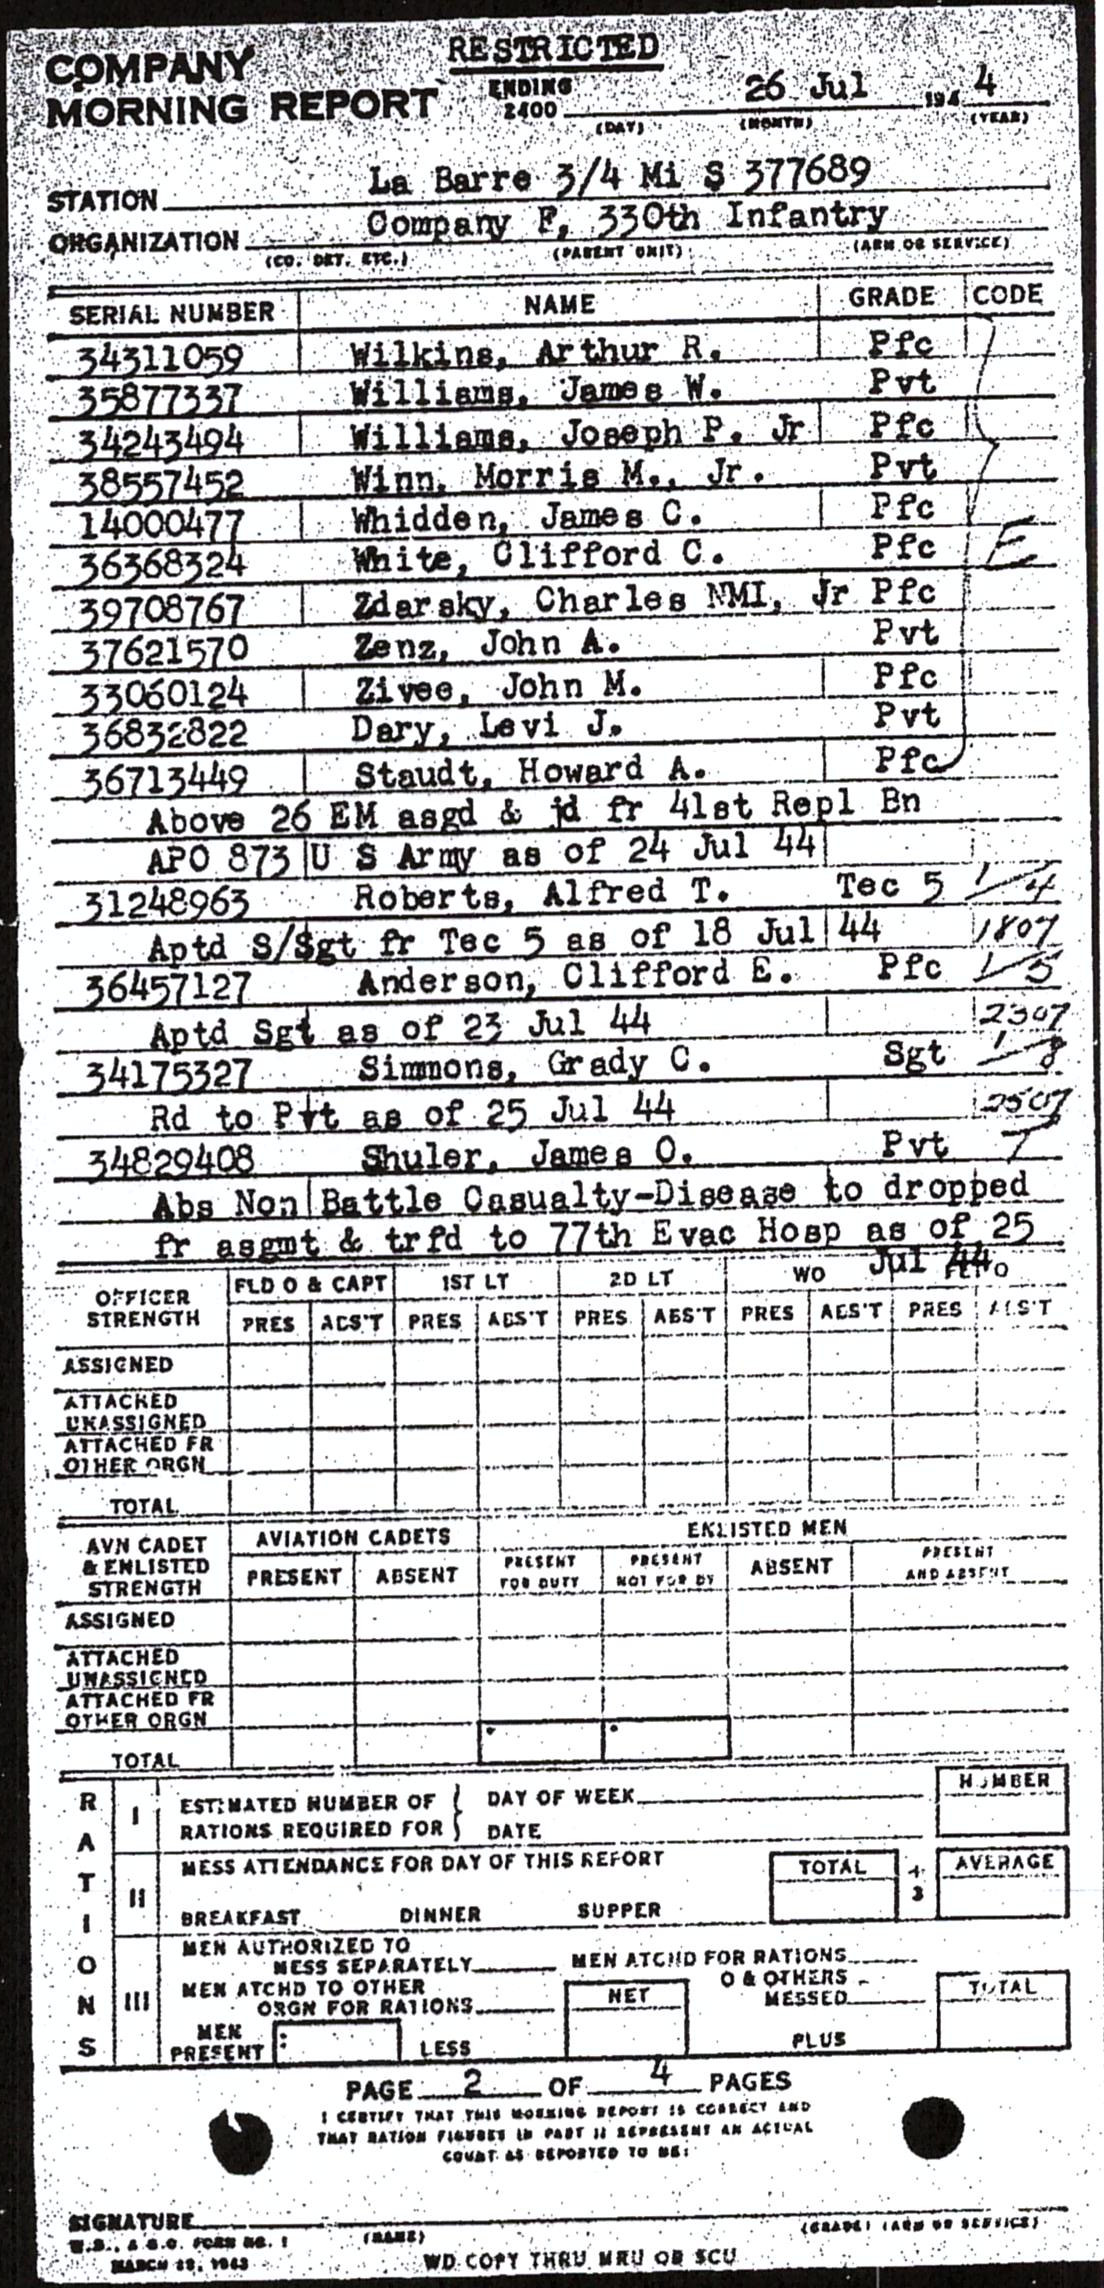 RESTRICTED
COMPANY
MORNING REPORT ENDING 2400 26 Jul 194 4
(DAY) (MONTH) (YEAR)
STATION La Barre 3/4 Mi S 377689
ORGANIZATION Company F, 330th Infantry
(CO. DET. ETC.) (PARENT UNIT) (ARM OR SERVICE)
SERIAL NUMBER NAME GRADE CODE
34311059 Wilkins, Arthur R. Pfc
35877337 Williams, James W. Pvt
34243494 Williams, Joseph P. Jr Pfc
38557452 Winn, Morris M., Jr. Pvt
14000477 Whidden, James C. Pfc
36368324 White, Clifford C. Pfc E
39708767 Zdarsky, Charles NMI, Jr Pfc
37621570 Zenz, John A. Pvt
33060124 Zivee, John M. Pfc
36832822 Dary, Levi J. Pvt
36713449 Staudt, Howard A. Pfc
Above 26 EM asgd & jd fr 41st Repl Bn
APO 873 U S Army as of 24 Jul 44
31248963 Roberts, Alfred T. Tec 5 1/4
Aptd S/Sgt fr Tec 5 as of 18 Jul 44 1807
36457127 Anderson, Clifford E. Pfc 1/5
Aptd Sgt as of 23 Jul 44 2307
34175327 Simmons, Grady C. Sgt 1/8
Rd to Pvt as of 25 Jul 44 2507
34829408 Shuler, James O. Pvt 7
Abs Non Battle Casualty-Disease to dropped
fr asgmt & trfd to 77th Evac Hosp as of 25
Jul 44
OFFICER STRENGTH FLD O & CAPT 1ST LT 2D LT WO FLT O
PRES ABS'T PRES ABS'T PRES ABS'T PRES ABS'T PRES ABS'T
ASSIGNED
ATTACHED
UNASSIGNED
ATTACHED FR
OTHER ORGN
TOTAL
AVN CADET & ENLISTED STRENGTH AVIATION CADETS ENLISTED MEN
PRESENT ABSENT PRESENT FOR DUTY PRESENT NOT FOR DY ABSENT PRESENT AND ABSENT
ASSIGNED
ATTACHED
UNASSIGNED
ATTACHED FR
OTHER ORGN
TOTAL
RATIONS
I ESTIMATED NUMBER OF RATIONS REQUIRED FOR DAY OF WEEK NUMBER
DATE
II MESS ATTENDANCE FOR DAY OF THIS REPORT TOTAL ÷ 3 AVERAGE
BREAKFAST DINNER SUPPER
III MEN AUTHORIZED TO
MESS SEPARATELY MEN ATCHD FOR RATIONS
MEN ATCHD TO OTHER
ORGN FOR RATIONS NET O & OTHERS MESSED TOTAL
MEN PRESENT LESS PLUS
PAGE 2 OF 4 PAGES
I CERTIFY THAT THIS MORNING REPORT IS CORRECT AND
THAT RATION FIGURES IN PART II REPRESENT AN ACTUAL
COUNT AS REPORTED TO ME:
SIGNATURE
(NAME) (GRADE) (ARM OR SERVICE)
W.D., A.G.O. FORM NO. 1
MARCH 22, 1943
WD COPY THRU MRU OR SCU